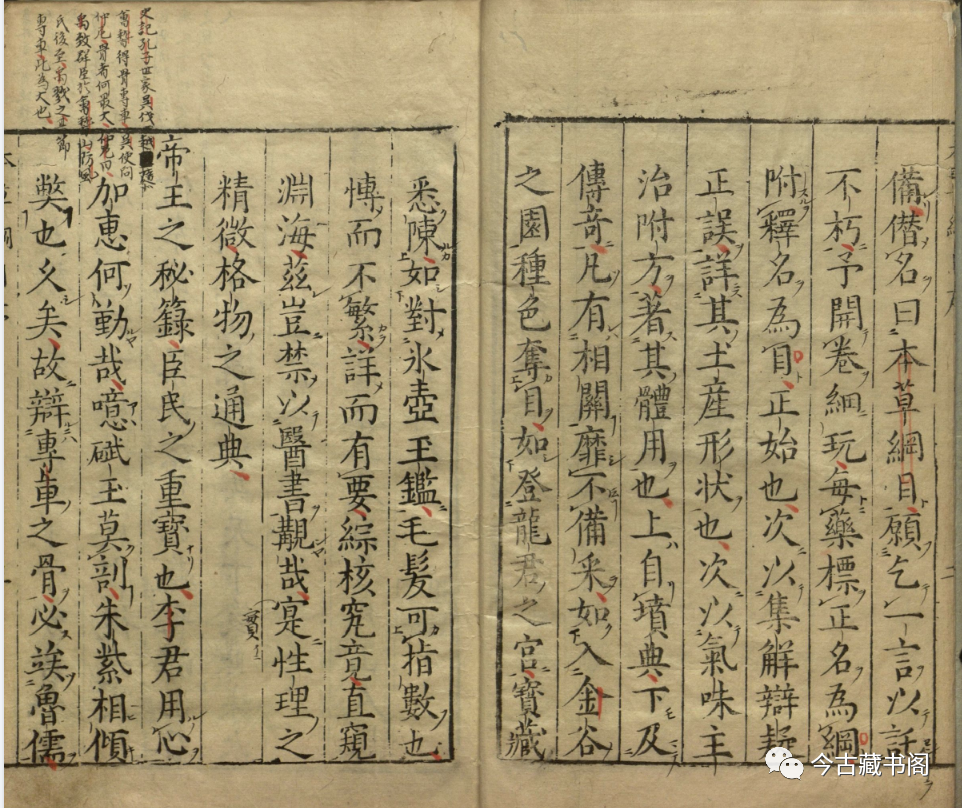 備僣名曰本草綱目願乞一言以託
不朽予開卷細玩每藥標正名為綱
附釋名為目正始也次以集解辯疑
正誤詳其土産形状也次以氣味主
治附方著其體用也上自墳典下及
傳竒凡有相關靡不備采如入金谷
之園種色奪目如登龍君之宮寳藏
悉陳如對氷壺玉鑑毛髪可指數也
愽而不繁詳而有要綜核究竟直窺
淵海兹豈禁以醫書觀哉寔性理之
精微格物之通典
帝王之秘籙臣民之重寳也李君用心
加惠何勤哉噫碔玉莫剖朱紫相傾
弊也久矣故辯專車之骨必竢魯儒
史記孔子世家吳伐越
會稽得骨專車吳使問
仲尼骨者何最大仲尼曰
禹致群臣於會稽山防風
氏後至禹戮之其節
專車此為大也
今古藏书阁